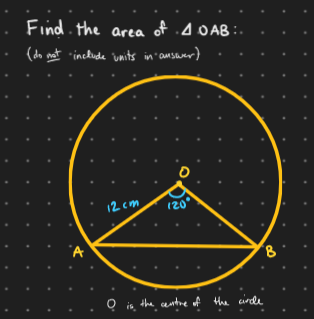 Find the area of △OAB:
(do not include units in answer)
O
12 cm
120°
A
B
O is the centre of the circle